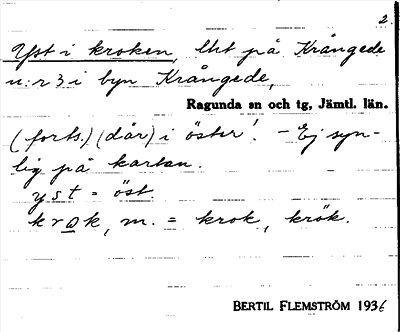 2.
Yst i kroken, lht på Krångede
n:r 3 i byn Krångede,
Ragunda sn och tg, Jämtl. län.
(forts.) (där) i öster! - Ej syn-
lig på kartan.
yst = öst.
krok, m. = krok, krök.
BERTIL FLEMSTRÖM 1936